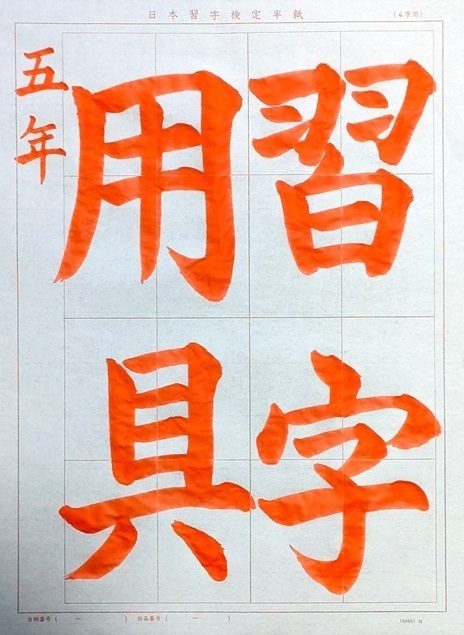 日本習字検定半紙
(4字用)
習字
用具
五年
台帳番号 ( ー )
出品番号 ( ー )